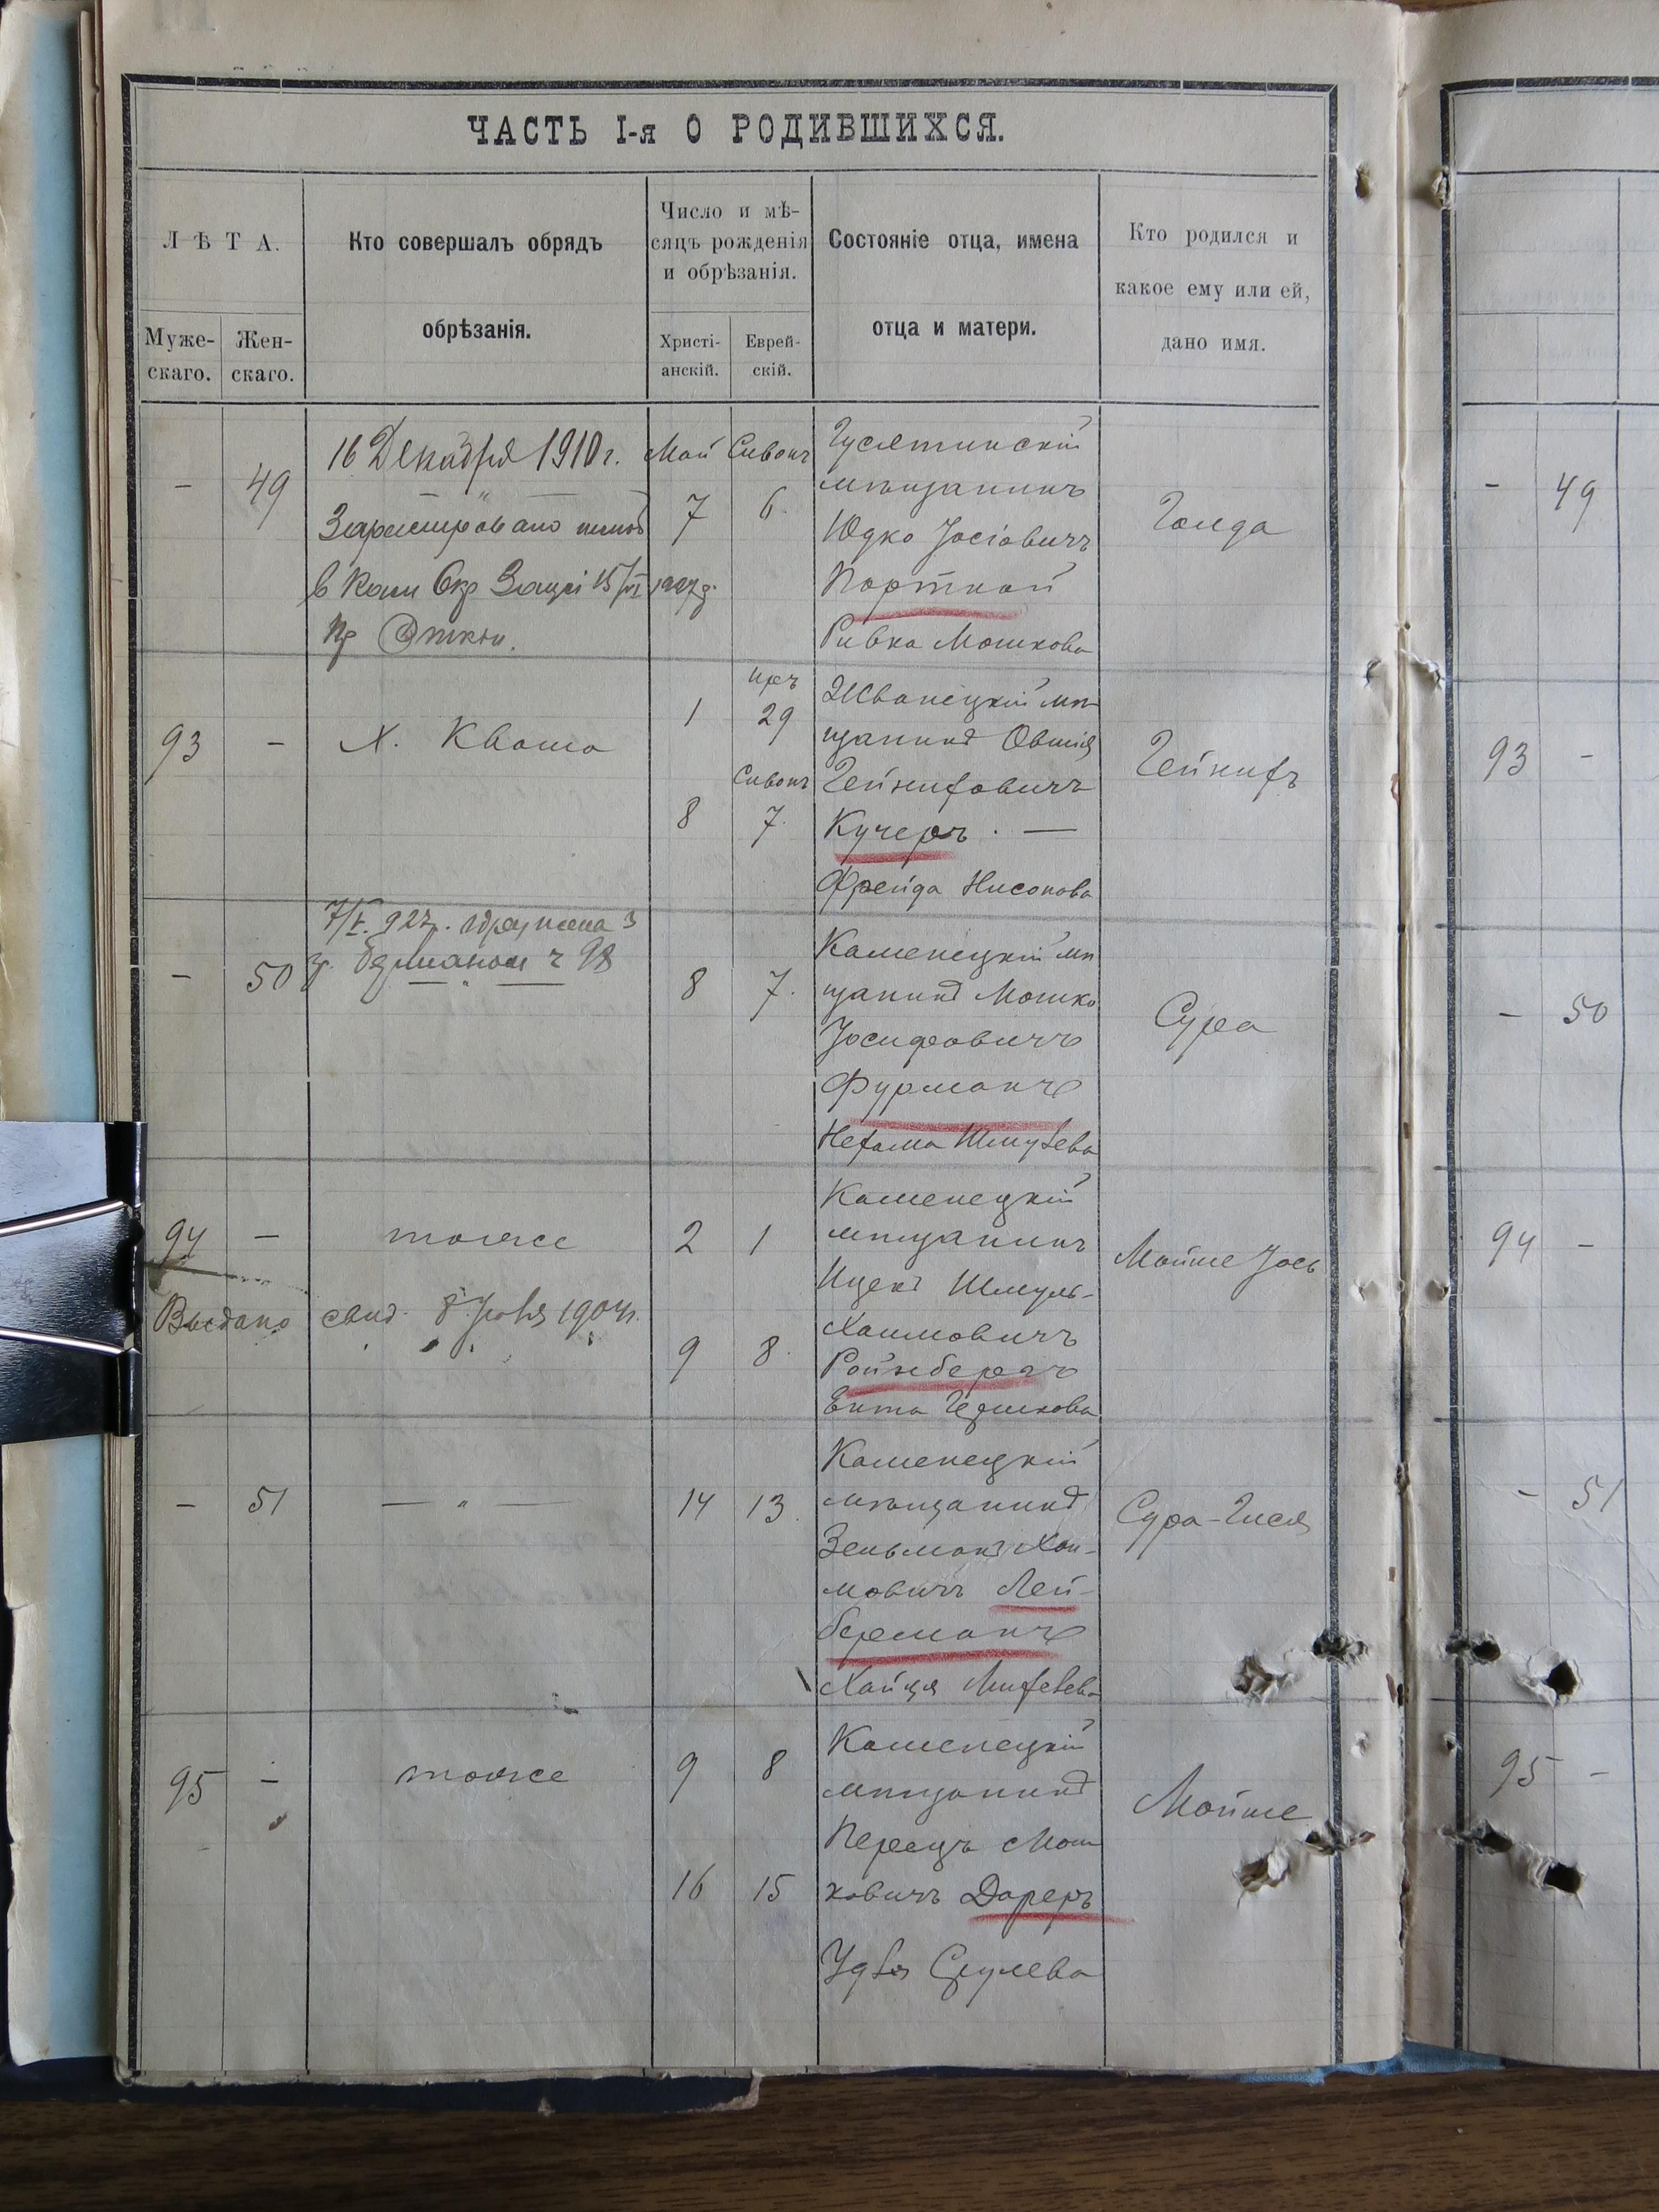 ЧАСТЬ I-я О РОДИВШИХСЯ.
ЛѢТА.
Муже-
скаго.
Жен-
скаго.
Кто совершалъ обрядъ
обрѣзанія.
Число и мѣ-
сяцъ рожденія
и обрѣзанія.
Христі-
анскій.
Еврей-
скій.
Состояніе отца, имена
отца и матери.
Кто родился и
какое ему или ей,
дано имя.
- 49
16 Декабря 1910 г.
— " —
в Кам Окр
Май Сивонъ
7 6.
Гусятинскій
мѣщанинъ
Юдко Іосіовичъ
Портной
Ривка Мошкова
Голда
- 49
93 -
Х. Кваша
1
29
Сивонъ
8 7.
Жванецкій мѣ
щанинъ Овшія
Гейниховичъ
Кучеръ. —
Фрейда Нисонова
Гейнихъ
93 -
- 50
— " —
8 7.
Каменецкій мѣ
щанинъ Мошко
Іосифовичъ
Фурманъ
Нехама Шмулева
Сура
- 50
94 -
тоже
Выдано свид. 8 1904 г.
2 1
9 8.
Каменецкій
мѣщанинъ
Ицекъ Шмуль-
Хаимовичъ
Ройзбергъ
Мойше Іось
94 -
- 51
— " —
14 13.
Каменецкій
мѣщанинъ
Зельманъ Хаи-
мовичъ Лей-
берманъ
Сура-Гися
- 51
95 -
тоже
9 8
16 15
Каменецкій
мѣщанинъ
Перецъ Мош
ковичъ Дареръ
Удля Срулева
Мойше
95 -